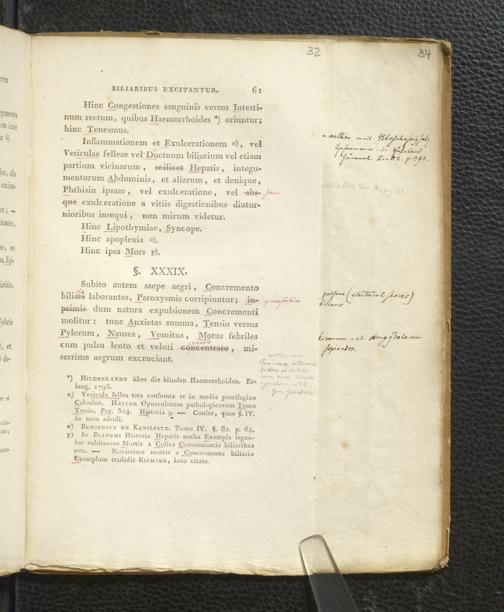 32 34
BILIARIBUS EXCITANTUR. 61
Hinc Congestiones sanguinis versus Intesti-
num rectum, quibus Haemorrhoides *) oriuntur;
hinc Tenesmus.
Inflammationem et Exulcerationem n), vel
Vesiculae felleae vel Ductuum biliarium vel etiam
partium vicinarum, scilicet Hepatis, integu-
mentorum Abdominis, et aliarum, et denique,
Phthisin ipsam, vel exulceratione, vel abs-
que exulceratione a vitiis digestionibus diutur-
nioribus insequi, non mirum videtur.
Hinc Lipothymiae, Syncope.
Hinc apoplexia o).
Hinc ipsa Mors p).
§. XXXIX.
Subito autem saepe aegri, Concremento
biliari laborantes, Paroxysmis corripiuntur; in-
primis dum natura expulsionem Concrementi
molitur: tunc Anxietas summa, Tensio versus
Pylorum, Nausea, Vomitus, Motus febriles
cum pulsu lento et veluti concentrato, mi-
serrime aegrum excruciant.
*) HILDEBRANDT über die blinden Haemorrhoiden. Er-
lang. 1795.
n) Vesicula fellea tota consumta et in media putrilagine
Calculus. HALLER Opusculorum pathologicorum Tomo
Tertio. Pag. 324. Historia 9. — Confer, quae §. IV.
in nota adtuli.
o) BURSERIUS DE KANILFELD. Tomo IV. §. 82. p. 64.
p) In BIANCHI Historia Hepatis multa Exempla legun-
tur subitaneae Mortis a Colica Concrementis biliaribus
orta. — Novissime mortis a Concremento biliario
Exemplum tradidit RICHTER, loco citato.